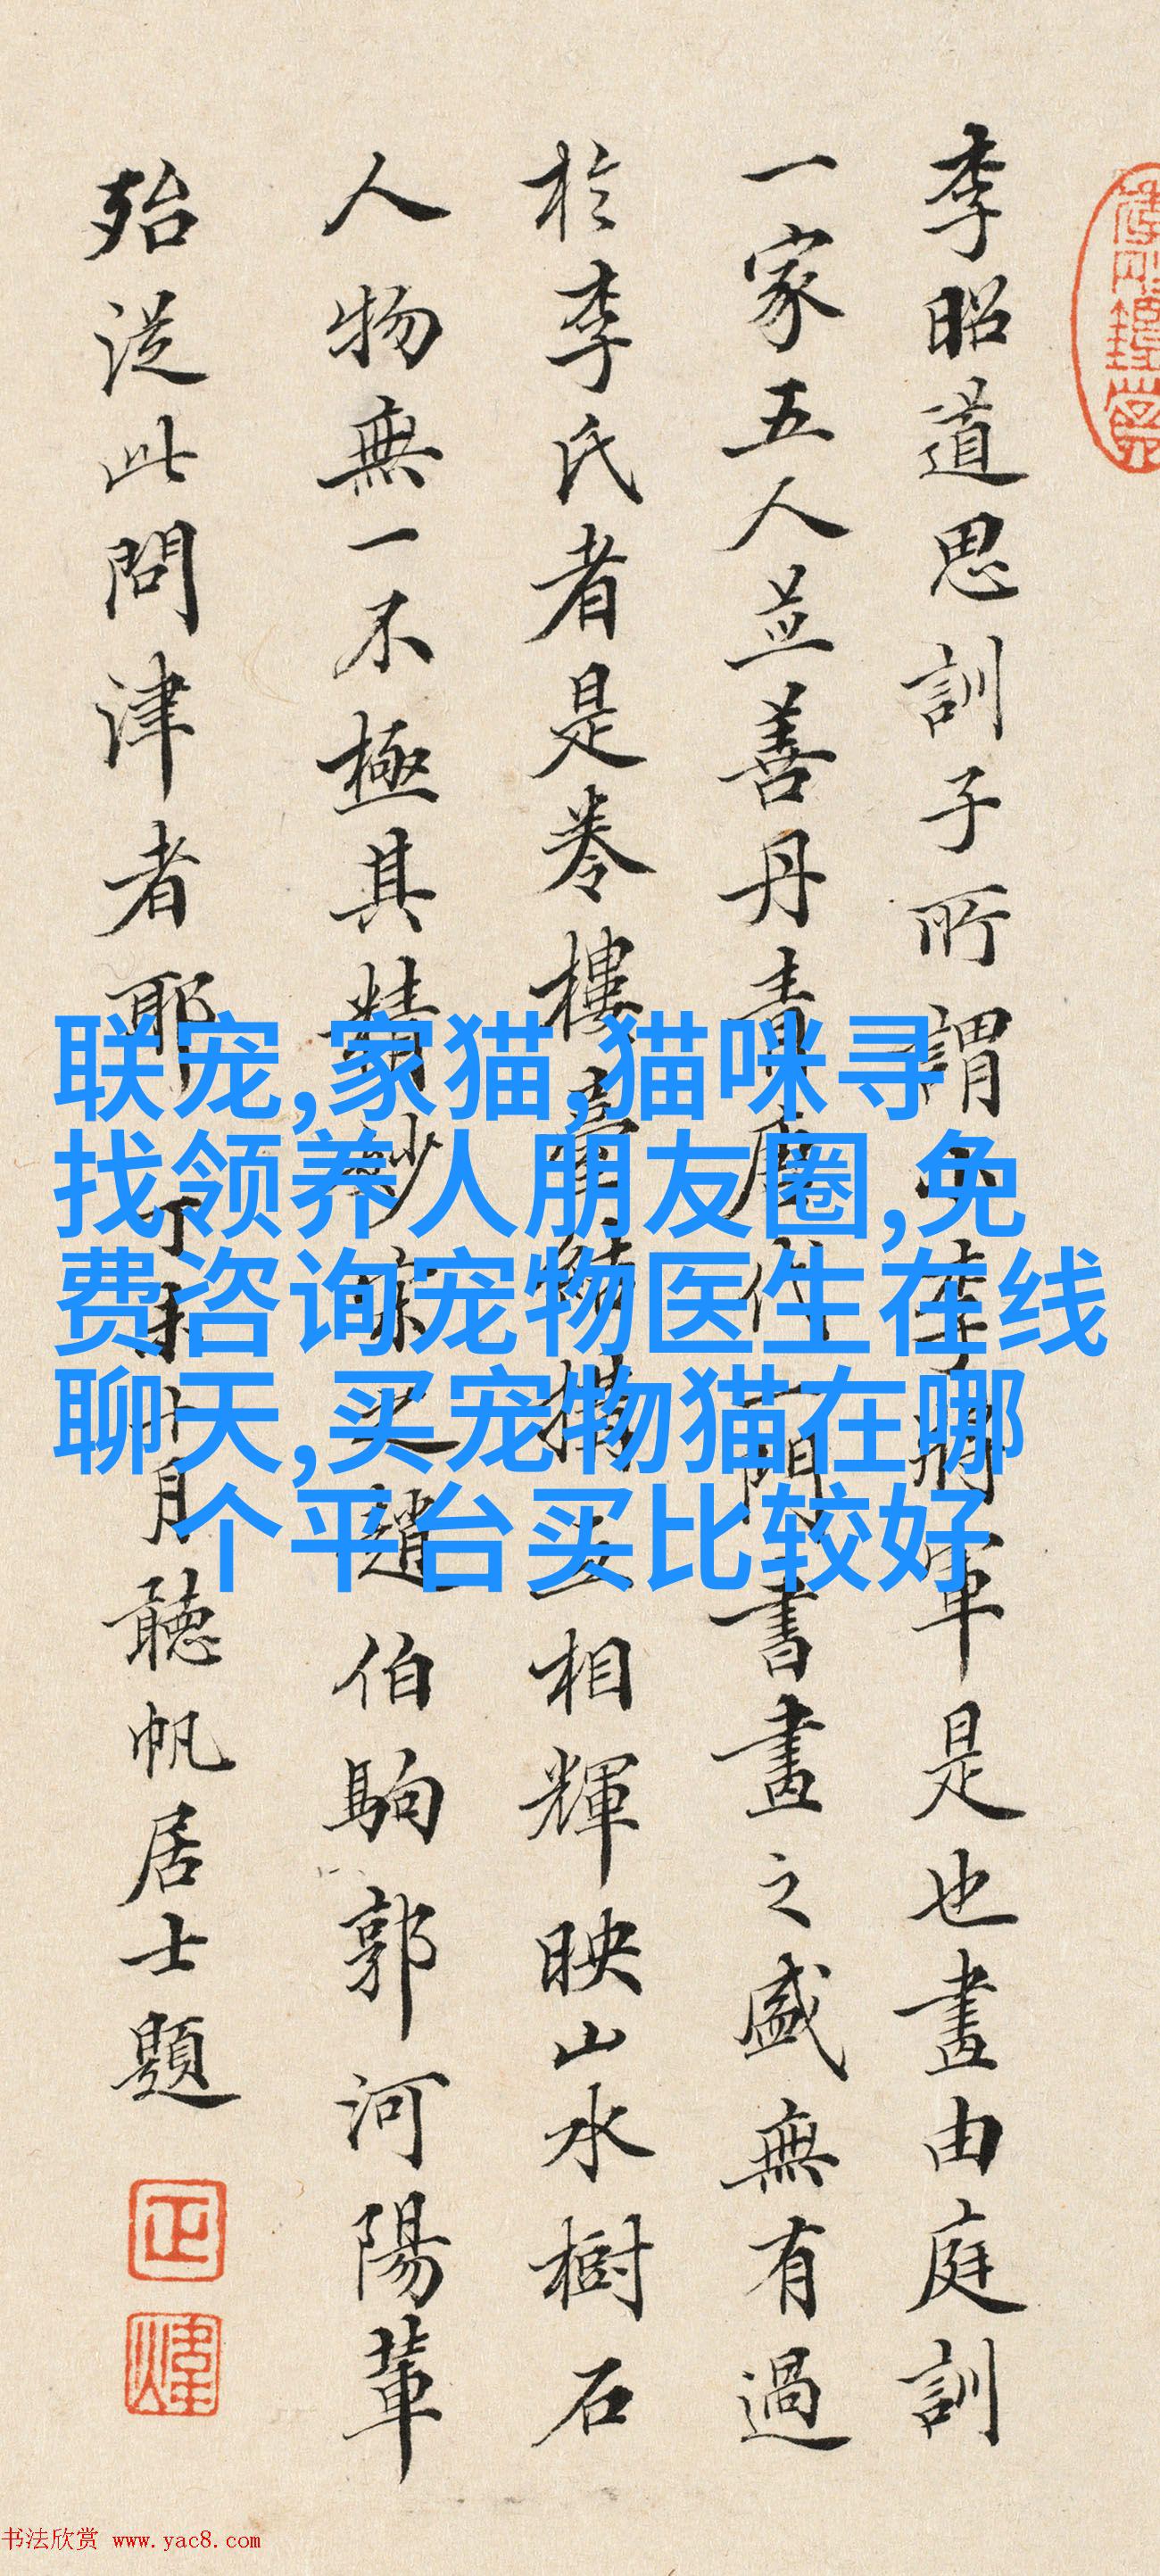 李昭道思訓子所謂小李將軍是也畫由庭訓
一家五人並善丹青唐代一門書畫之盛無有過
於李氏者是卷樓臺精描互相輝映山水樹石
人物無一不極其精妙宗之趙伯駒郭河陽輩
殆從此問津者耶
丁未十月聽帆居士題
正
煒
联宠,家猫,猫咪寻
找领养人朋友圈,免
费咨询宠物医生在线
聊天,买宠物猫在哪
个平台买比较好
书法欣赏 www.yac8.com